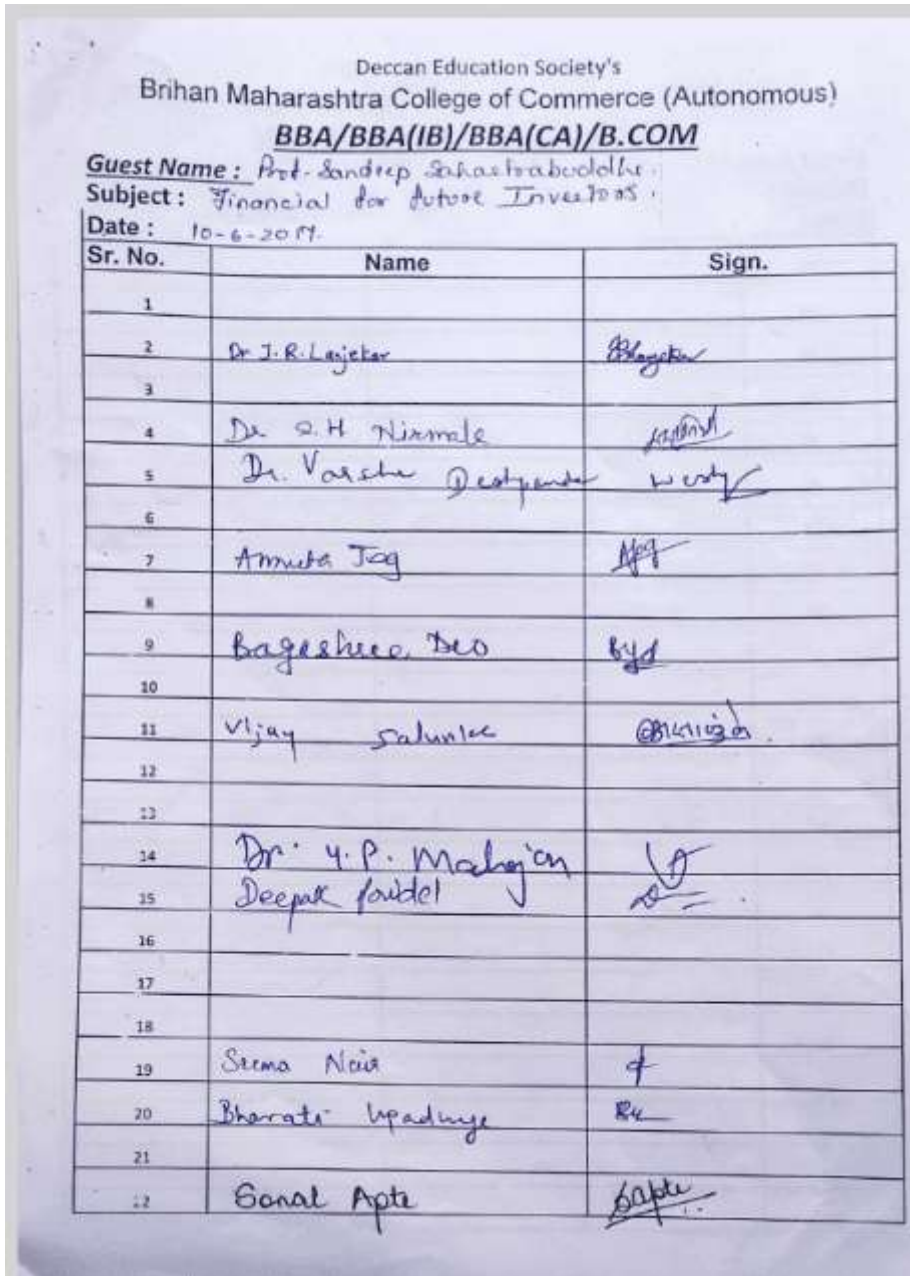 Deccan Education Society's
Brihan Maharashtra College of Commerce (Autonomous)
BBA/BBA(IB)/BBA(CA)/B.COM
Guest Name : Prof. Sandeep Sahastrabuddhe.
Subject : Financial for future Investors.
Date : 10-6-2019.
Sr. No. Name Sign.
1
2 Dr J. R. Lanjekar
3
4 Dr S.H Nirmale
5 Dr. Varsha Deshpande
6
7 Amruta Jog
8
9 Bageshree Deo
10
11 Vijay Salunke
12
13
14 Dr. Y. P. Mahajan
15 Deepak Poudel
16
17
18
19 Seema Nair
20 Bharati Upadhye
21
22 Sonal Apte SApte